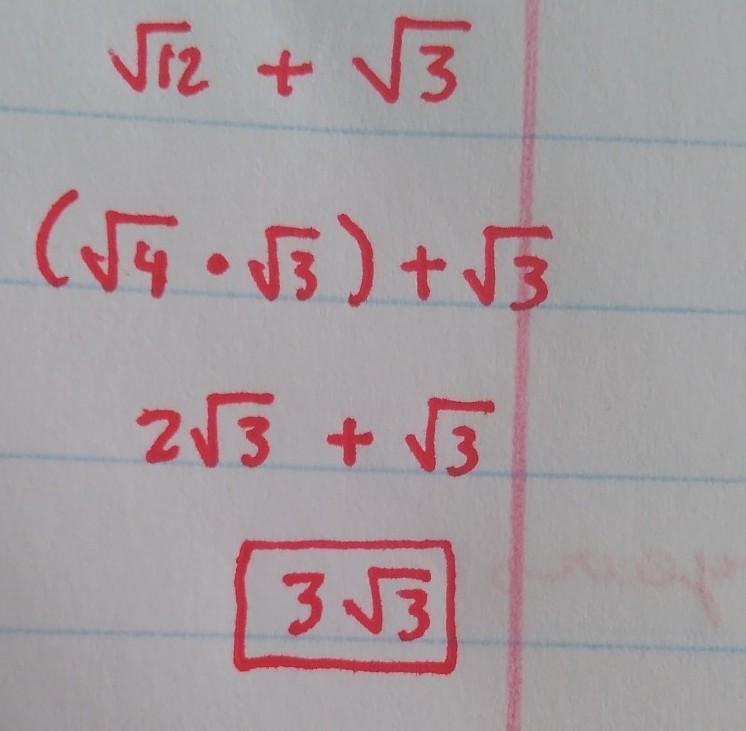 √12 + √3
(√4 • √3) + √3
2√3 + √3
3√3